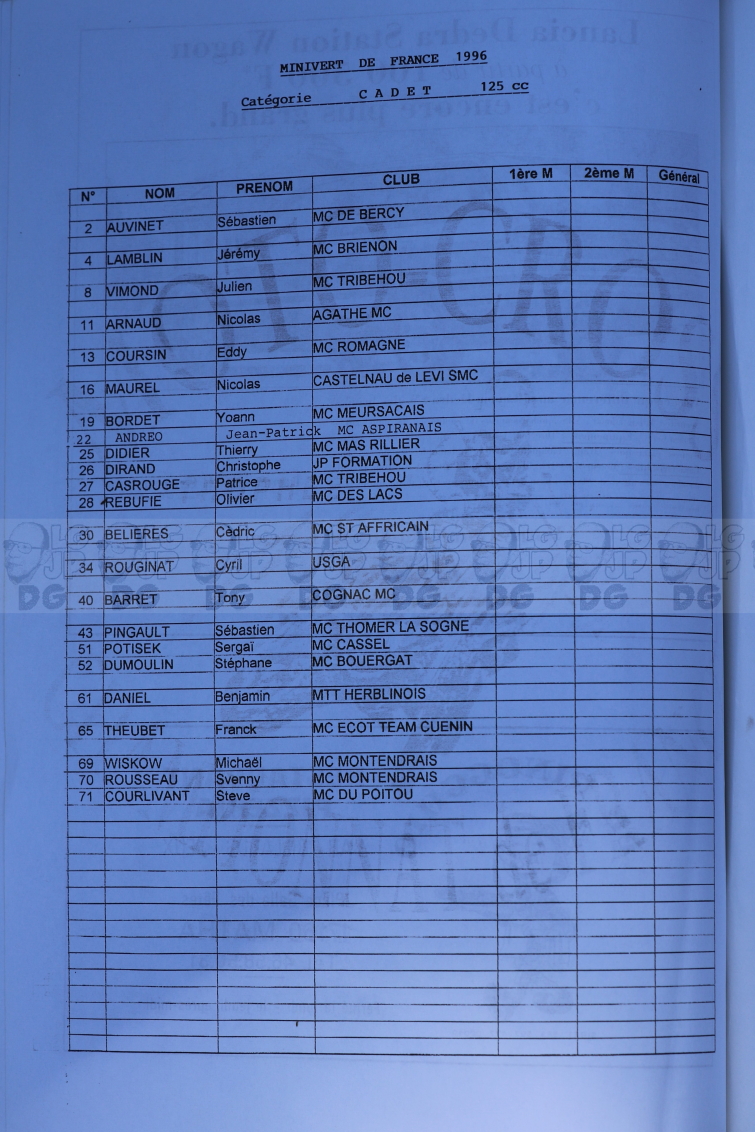 MINIVERT DE FRANCE 1996
Catégorie C A D E T 125 cc
N° NOM PRENOM CLUB 1ère M 2ème M Général
2 AUVINET Sébastien MC DE BERCY
4 LAMBLIN Jérémy MC BRIENON
8 VIMOND Julien MC TRIBEHOU
11 ARNAUD Nicolas AGATHE MC
13 COURSIN Eddy MC ROMAGNE
16 MAUREL Nicolas CASTELNAU de LEVI SMC
19 BORDET Yoann MC MEURSACAIS
22 ANDREO Jean-Patrick MC ASPIRANAIS
25 DIDIER Thierry MC MAS RILLIER
26 DIRAND Christophe JP FORMATION
27 CASROUGE Patrice MC TRIBEHOU
28 REBUFIE Olivier MC DES LACS
30 BELIERES Cèdric MC ST AFFRICAIN
34 ROUGINAT Cyril USGA
40 BARRET Tony COGNAC MC
43 PINGAULT Sébastien MC THOMER LA SOGNE
51 POTISEK Sergaï MC CASSEL
52 DUMOULIN Stéphane MC BOUERGAT
61 DANIEL Benjamin MTT HERBLINOIS
65 THEUBET Franck MC ECOT TEAM CUENIN
69 WISKOW Michaël MC MONTENDRAIS
70 ROUSSEAU Svenny MC MONTENDRAIS
71 COURLIVANT Steve MC DU POITOU